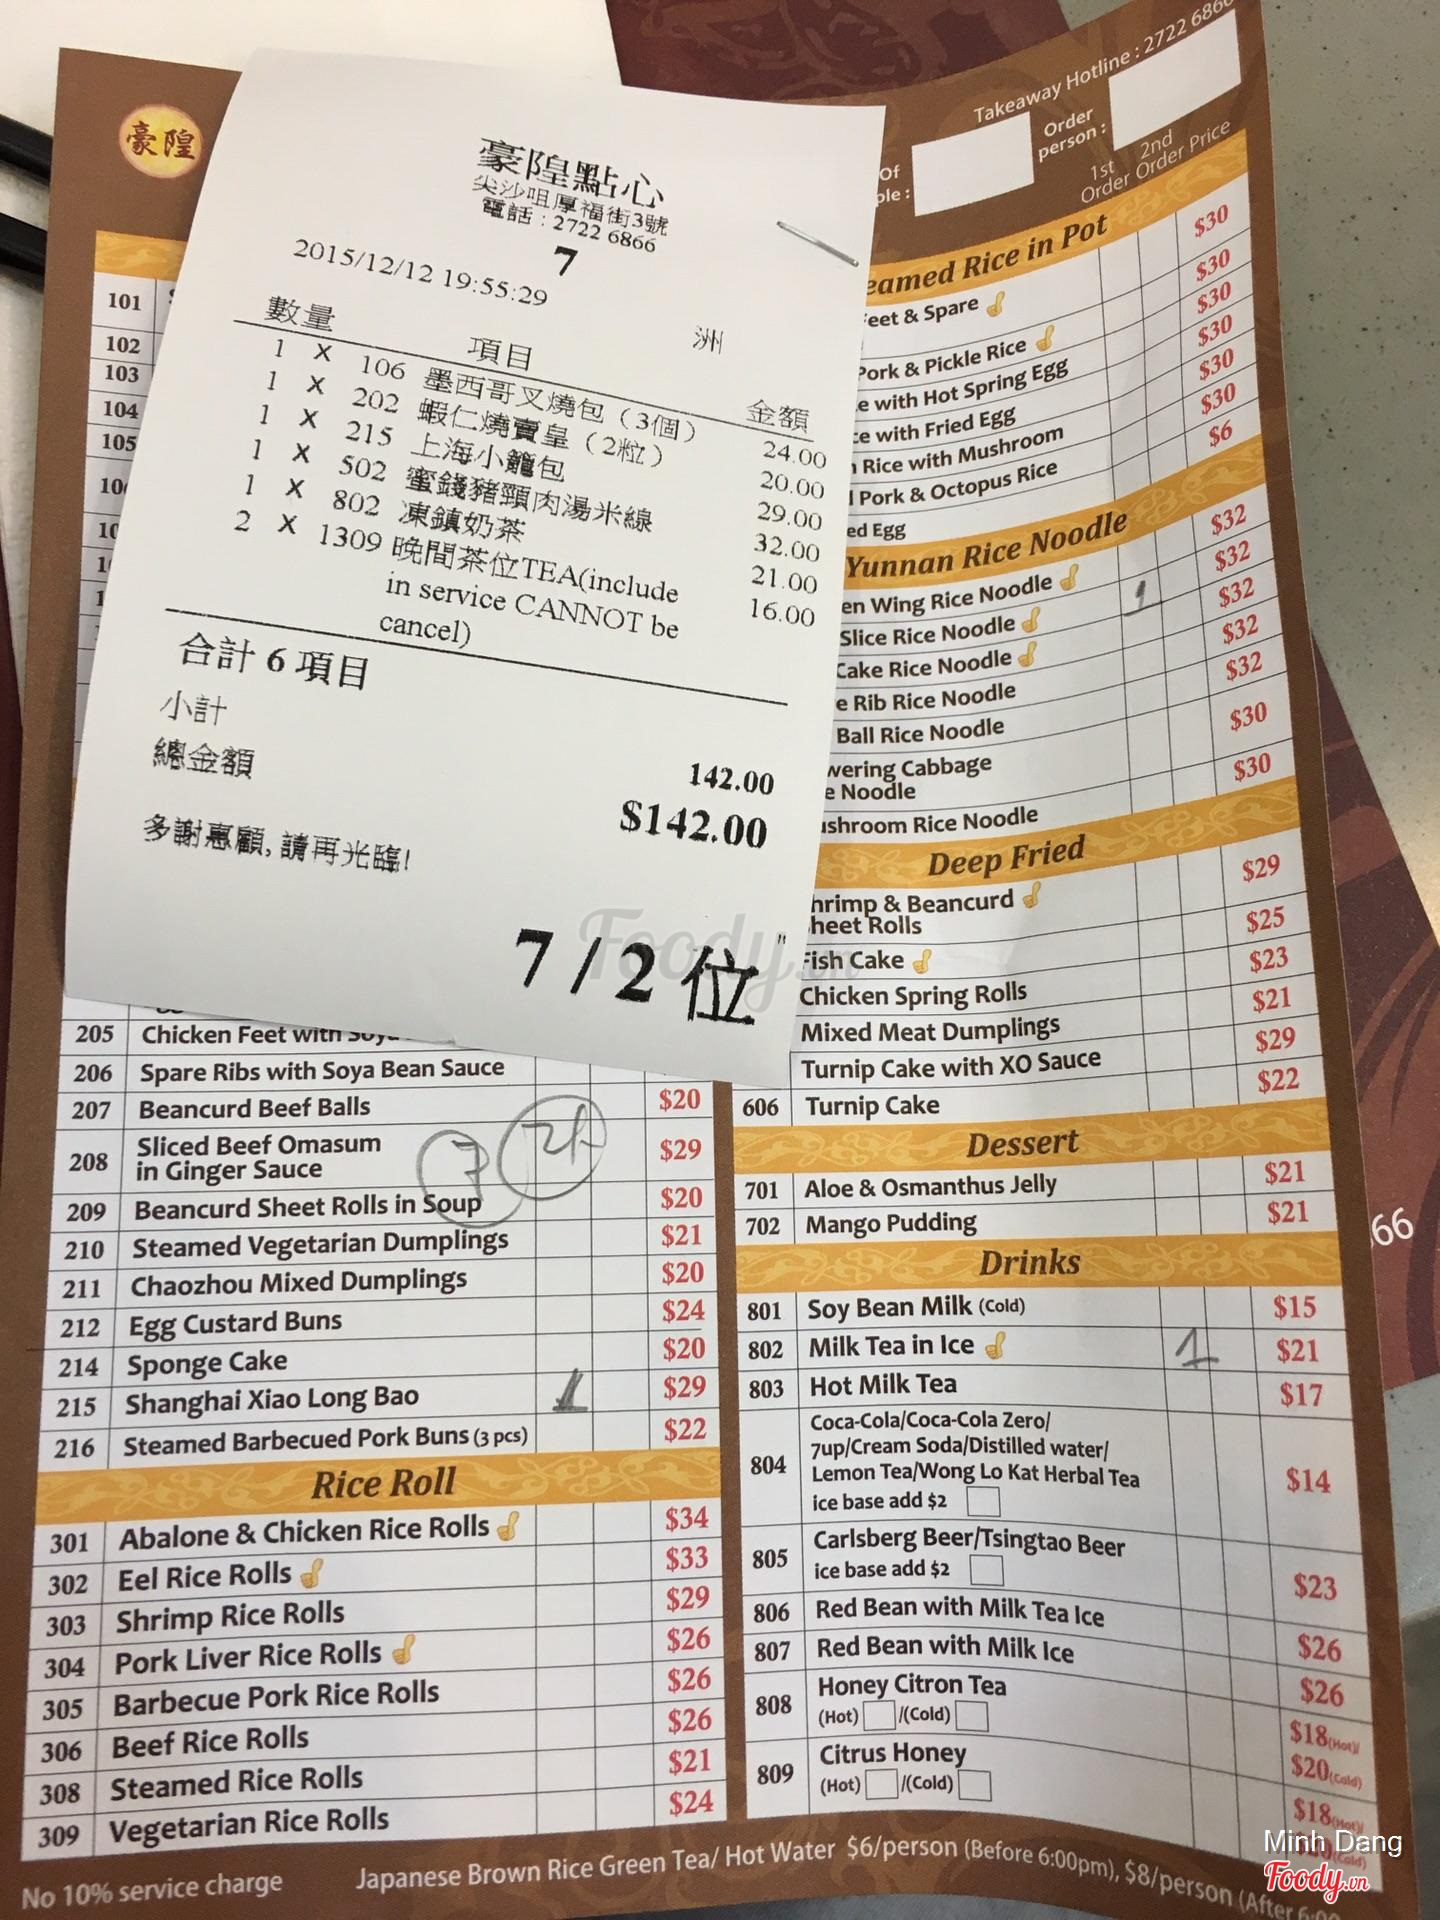 豪隍
豪隍點心
尖沙咀厚福街3號
電話 : 2722 6866
7
2015/12/12 19:55:29
洲
數量 項目 金額
1 X 106 墨西哥叉燒包（3個） 24.00
1 X 202 蝦仁燒賣皇（2粒） 20.00
1 X 215 上海小籠包 29.00
1 X 502 蜜錢豬頸肉湯米線 32.00
1 X 802 凍鎮奶茶 21.00
2 X 1309 晚間茶位TEA(include 16.00
in service CANNOT be
cancel)
合計 6 項目
小計 142.00
總金額 $142.00
多謝惠顧, 請再光臨!
7 / 2 位
Foody.vn
101
102
103
104
105
205 Chicken Feet with
206 Spare Ribs with Soya Bean Sauce
207 Beancurd Beef Balls $20
208 Sliced Beef Omasum
in Ginger Sauce $29
7
209 Beancurd Sheet Rolls in Soup $20
210 Steamed Vegetarian Dumplings $21
211 Chaozhou Mixed Dumplings $20
212 Egg Custard Buns $24
214 Sponge Cake $20
215 Shanghai Xiao Long Bao 1 $29
216 Steamed Barbecued Pork Buns (3 pcs) $22
Rice Roll
301 Abalone & Chicken Rice Rolls $34
302 Eel Rice Rolls $33
303 Shrimp Rice Rolls $29
304 Pork Liver Rice Rolls $26
305 Barbecue Pork Rice Rolls $26
306 Beef Rice Rolls $26
308 Steamed Rice Rolls $21
309 Vegetarian Rice Rolls $24
Takeaway Hotline : 2722 6866
Of
ple :
Order
person :
1st Order 2nd Order Price
eamed Rice in Pot
$30
eet & Spare $30
Pork & Pickle Rice $30
e with Hot Spring Egg $30
ce with Fried Egg $30
Rice with Mushroom $30
Pork & Octopus Rice $6
ed Egg
Yunnan Rice Noodle
en Wing Rice Noodle $32
Slice Rice Noodle 1 $32
Cake Rice Noodle $32
e Rib Rice Noodle $32
Ball Rice Noodle $32
wering Cabbage
e Noodle $30
ushroom Rice Noodle $30
Deep Fried
hrimp & Beancurd
heet Rolls $29
Fish Cake $25
Chicken Spring Rolls $23
Mixed Meat Dumplings $21
Turnip Cake with XO Sauce $29
606 Turnip Cake $22
Dessert
701 Aloe & Osmanthus Jelly $21
702 Mango Pudding $21
Drinks
801 Soy Bean Milk (Cold) $15
802 Milk Tea in Ice 1 $21
803 Hot Milk Tea $17
804 Coca-Cola/Coca-Cola Zero/
7up/Cream Soda/Distilled water/
Lemon Tea/Wong Lo Kat Herbal Tea
ice base add $2 $14
805 Carlsberg Beer/Tsingtao Beer
ice base add $2 $23
806 Red Bean with Milk Tea Ice $26
807 Red Bean with Milk Ice $26
808 Honey Citron Tea
(Hot) /(Cold) $18(Hot)/
$20(Cold)
809 Citrus Honey
(Hot) /(Cold) $18(Hot)/
$20(Cold)
66
No 10% service charge
Japanese Brown Rice Green Tea/ Hot Water $6/person (Before 6:00pm), $8/person (After 6:00
Minh Dang
Foody.vn